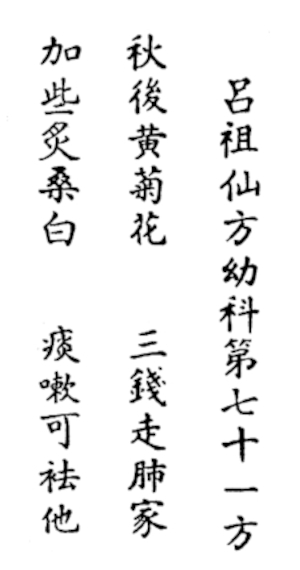 呂祖仙方幼科第七十一方
秋後黄菊花　三錢走肺家
加些炙桑白　痰嗽可袪他